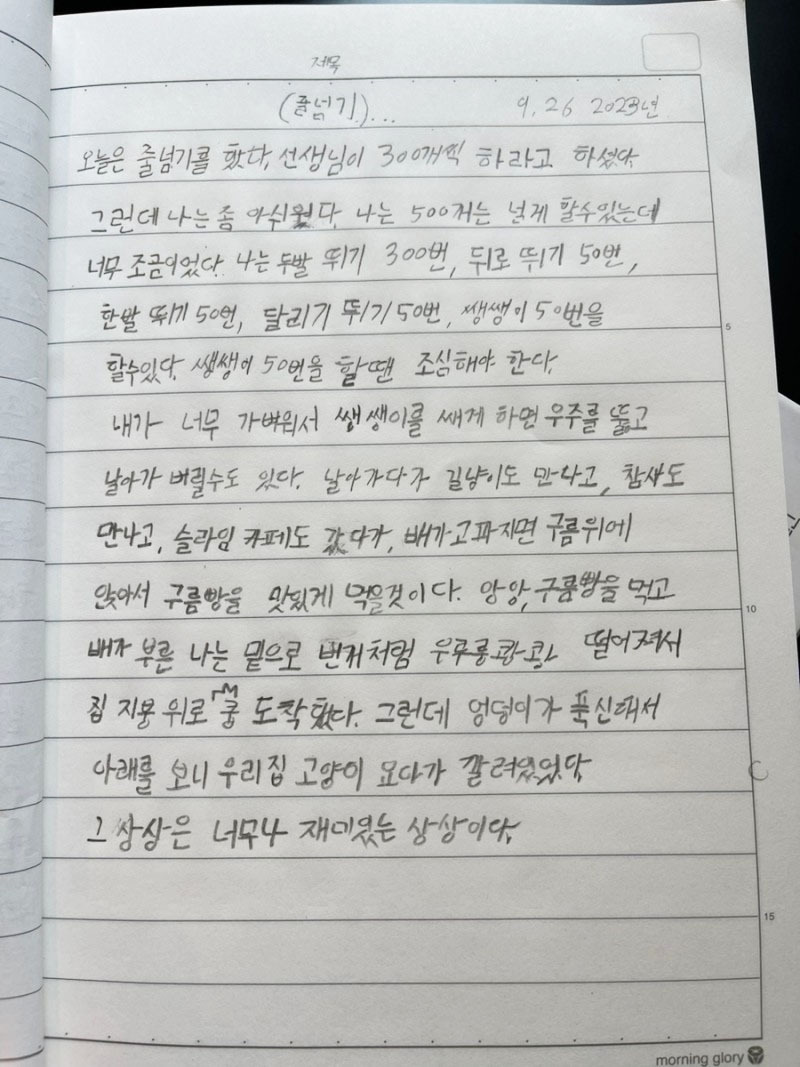 제목
(줄넘기)... 9. 26 2023년
오늘은 줄넘기를 했다. 선생님이 300개씩 하라고 하셨다.
그런데 나는 좀 아쉬웠다. 나는 500개는 넘게 할수있는데
너무 조금이었다. 나는 두발 뛰기 300번, 뒤로 뛰기 50번,
한발 뛰기 50번, 달리기 뛰기 50번, 쌩쌩이 50번을
할수있다. 쌩쌩이 50번을 할땐 조심해야 한다.
내가 너무 가벼워서 쌩쌩이를 쌔게 하면 우주를 뚫고
날아가 버릴수도 있다. 날아가다가 길냥이도 만나고, 참새도
만나고, 슬라임 카페도 갔다가, 배가고파지면 구름위에
앉아서 구름빵을 맛있게 먹을것이다. 앙앙, 구름빵을 먹고
배가 부른 나는 밑으로 번개처럼 우루룽쾅쾅 떨어져서
집 지붕 위로 쿵 도착했다. 그런데 엉덩이가 푹신해서
아래를 보니 우리집 고양이 요다가 깔려있었다.
그 상상은 너무나 재미있는 상상이다.
5
10
15
morning glory